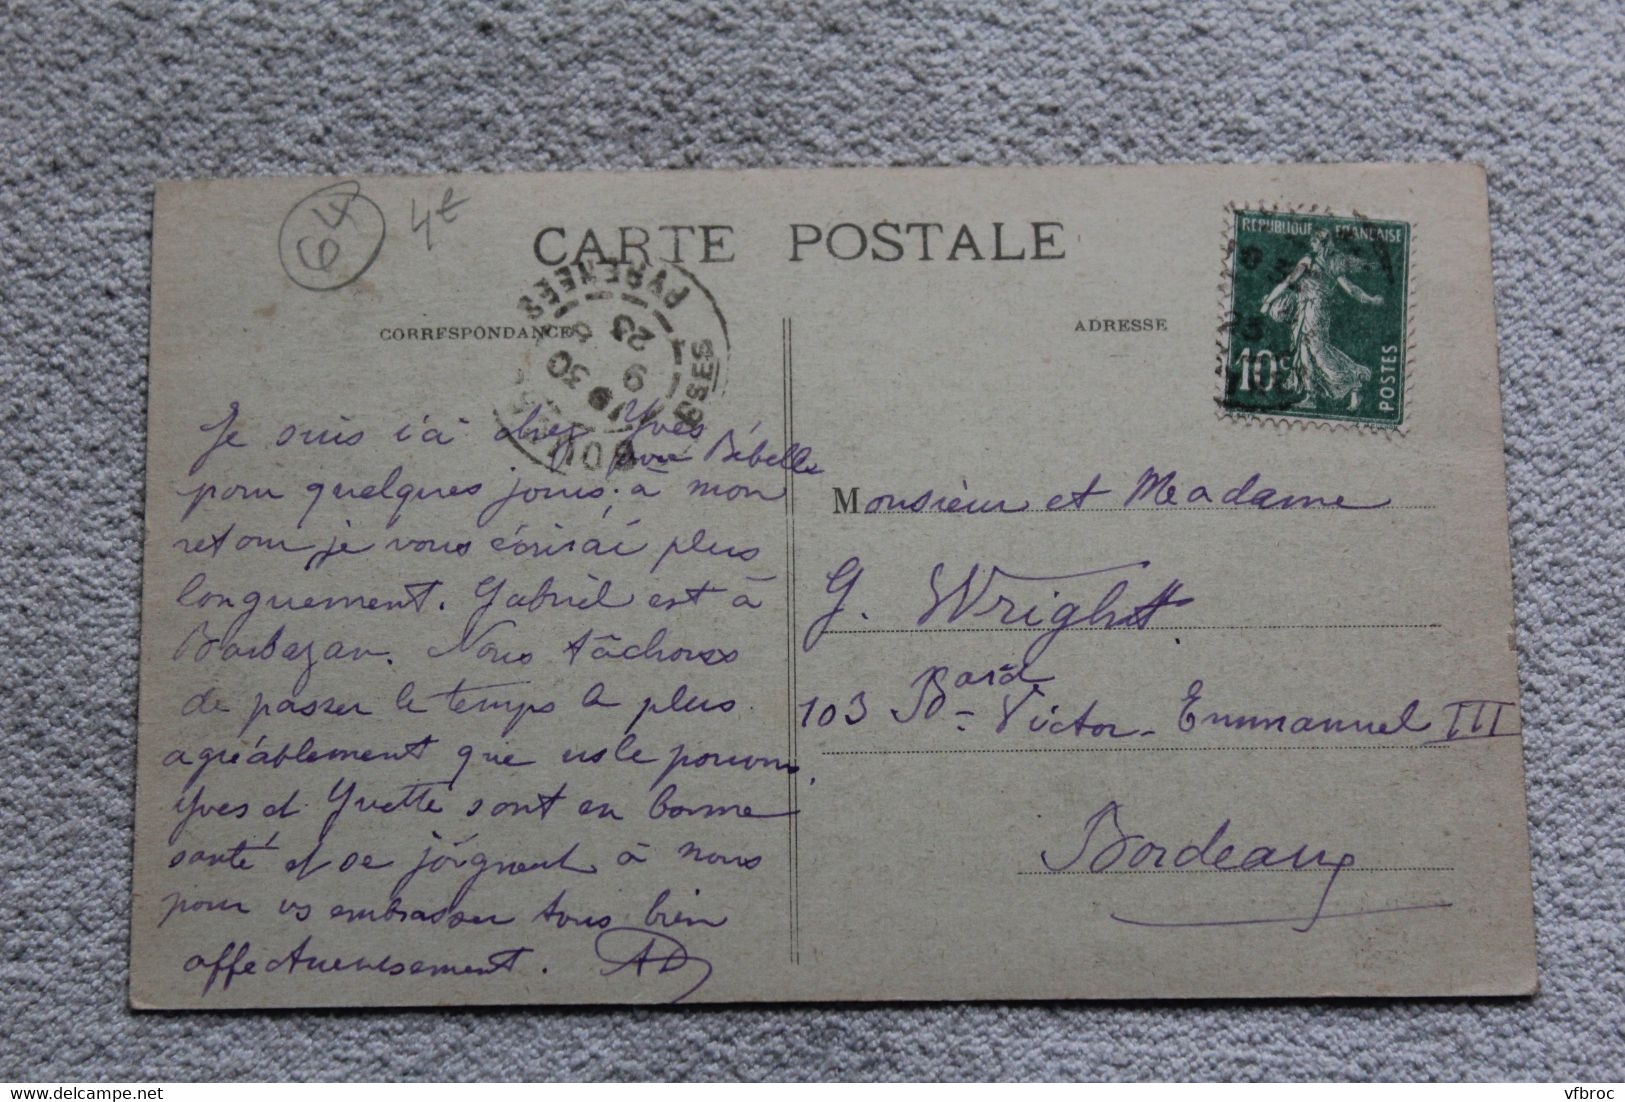 64
4€
CARTE POSTALE
CORRESPONDANCE
ADRESSE
RÉPUBLIQUE FRANÇAISE
10c
POSTES
PYRENEES
19 30
23
9
Je suis ici chez Yves
avec Bébelle
pour quelques jours. à mon
retour je vous écrirai plus
longuement. Gabriel est à
Barbazan. Nous tâchons
de passer le temps le plus
agréablement que ns le pouvons.
Yves et Yvette sont en bonne
santé et se joignent à nous
pour vs embrasser tous bien
affectueusement. AD
Monsieur et Madame
G. Wright.
103 Bard - Victor-Emmanuel III
Bordeaux
© delcampe.net
vfbroc